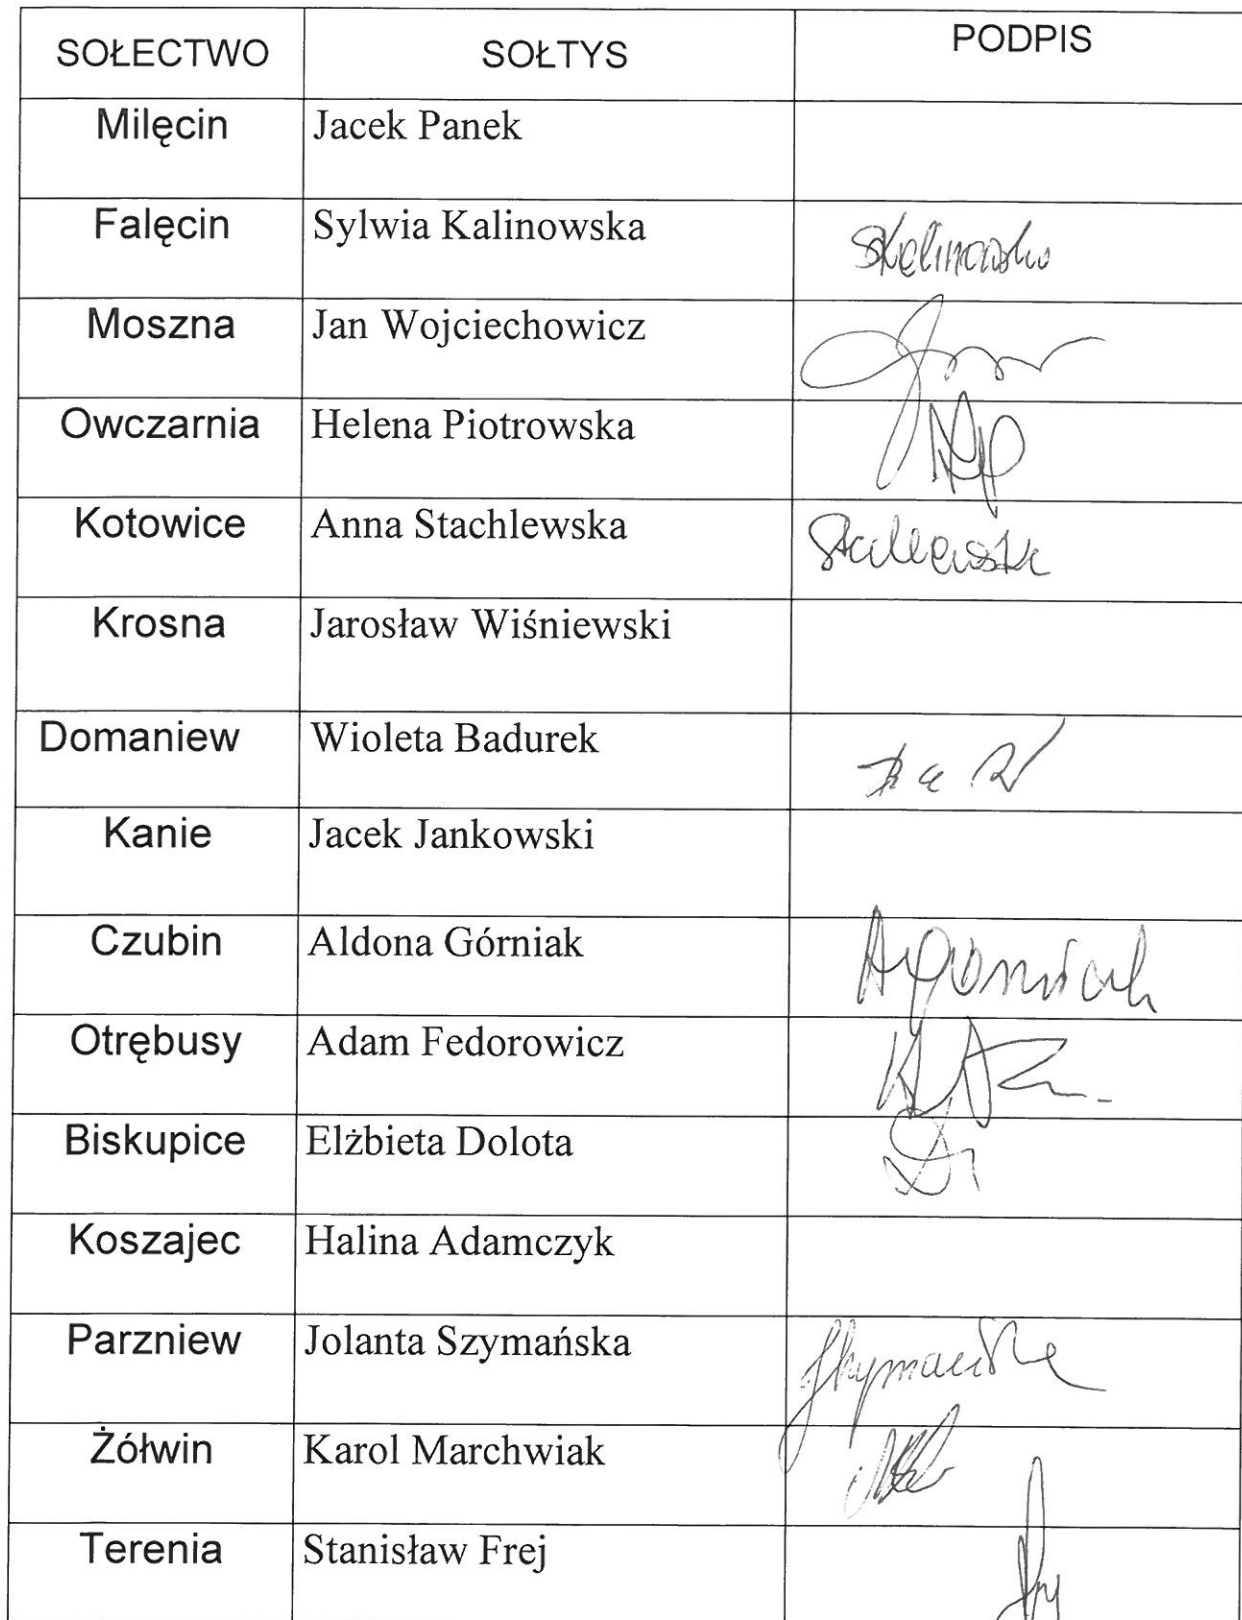 SOŁECTWO SOŁTYS PODPIS
Milęcin Jacek Panek
Falęcin Sylwia Kalinowska SKalinowska
Moszna Jan Wojciechowicz
Owczarnia Helena Piotrowska
Kotowice Anna Stachlewska
Krosna Jarosław Wiśniewski
Domaniew Wioleta Badurek
Kanie Jacek Jankowski
Czubin Aldona Górniak AGórniak
Otrębusy Adam Fedorowicz
Biskupice Elżbieta Dolota
Koszajec Halina Adamczyk
Parzniew Jolanta Szymańska
Żółwin Karol Marchwiak
Terenia Stanisław Frej